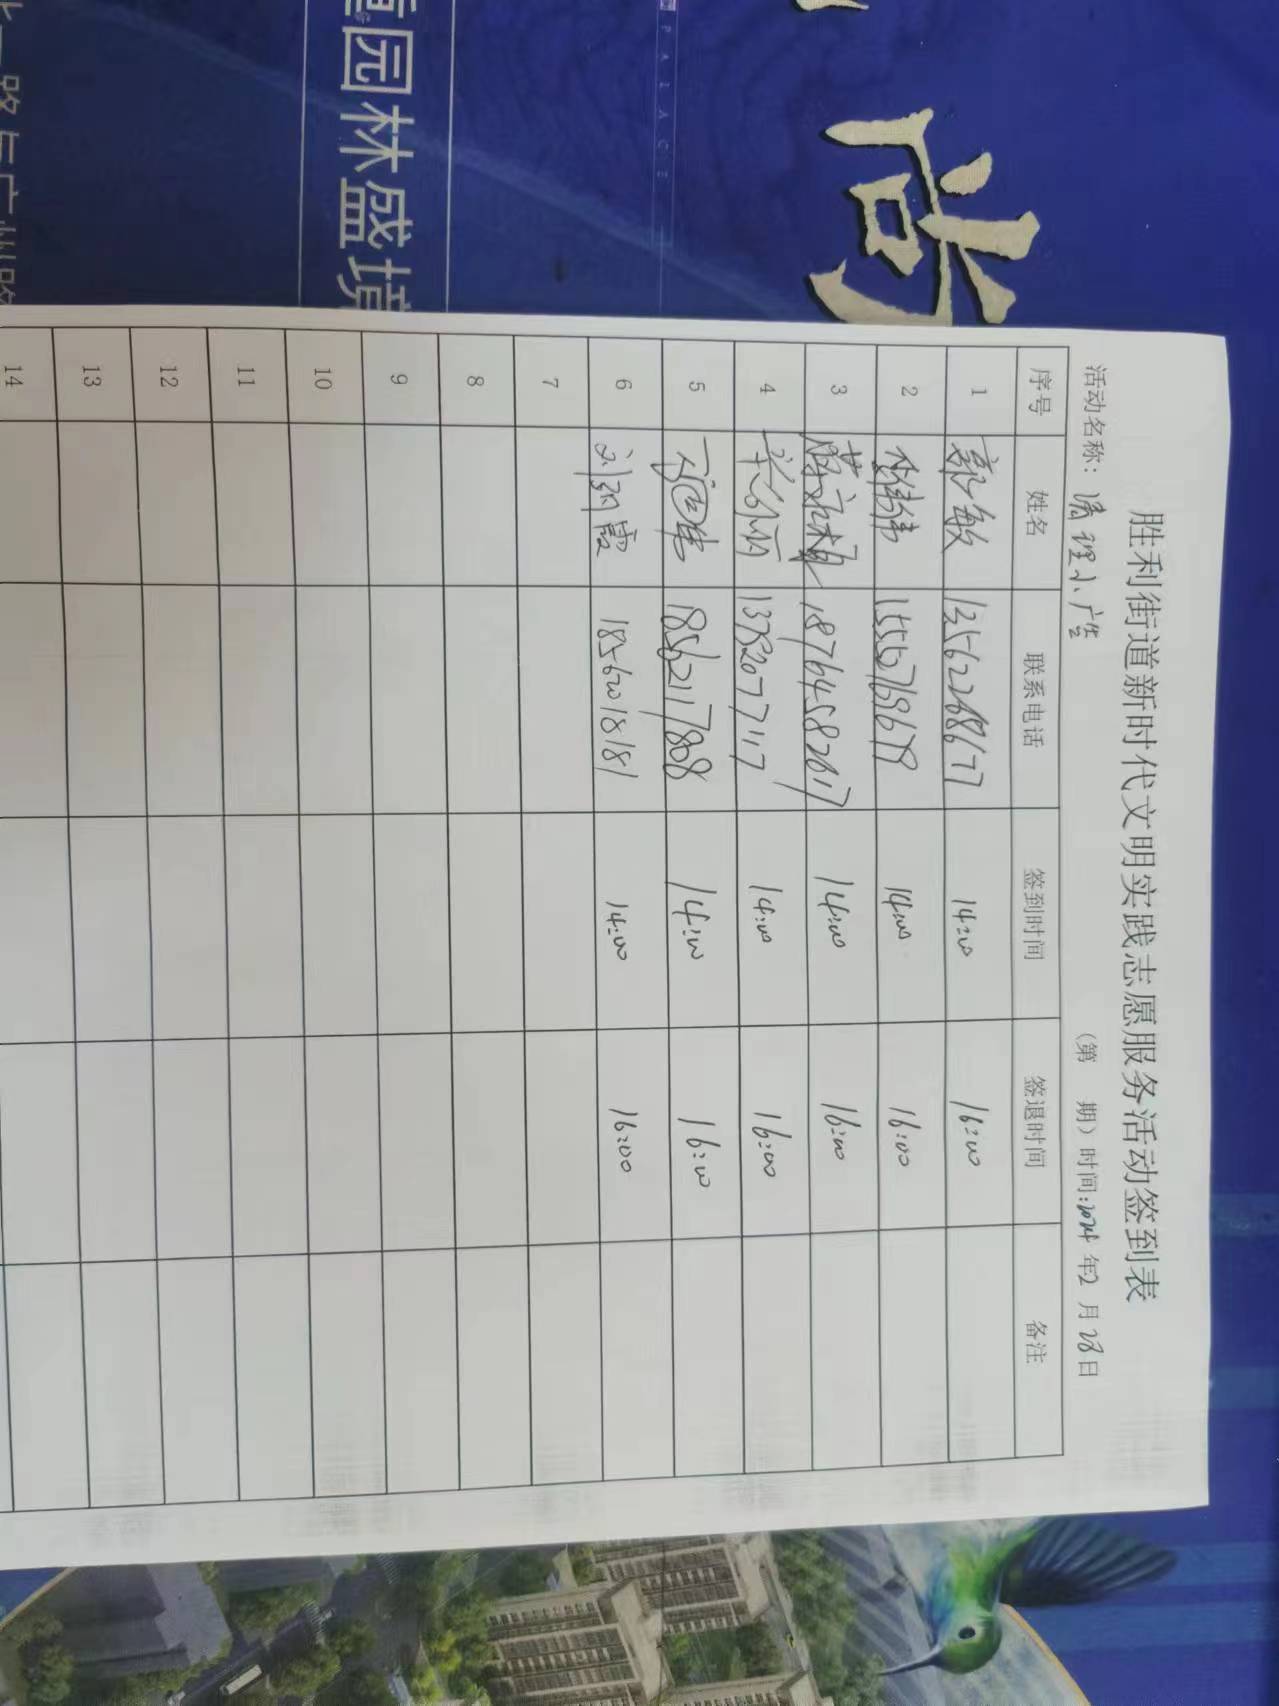 园林盛境
PALACE
尚
胜利街道新时代文明实践志愿服务活动签到表
活动名称：清理小广告
（第 期）时间：2024年2月28日
序号 姓名 联系电话 签到时间 签退时间 备注
1 郭敏 13562288677 14:00 16:00
2 1555769679 14:00 16:00
3 18764582617 14:00 16:00
4 13782077117 14:00 16:00
5 18562117808 14:00 16:00
6 刘丽霞 18562018181 14:00 16:00
7
8
9
10
11
12
13
14